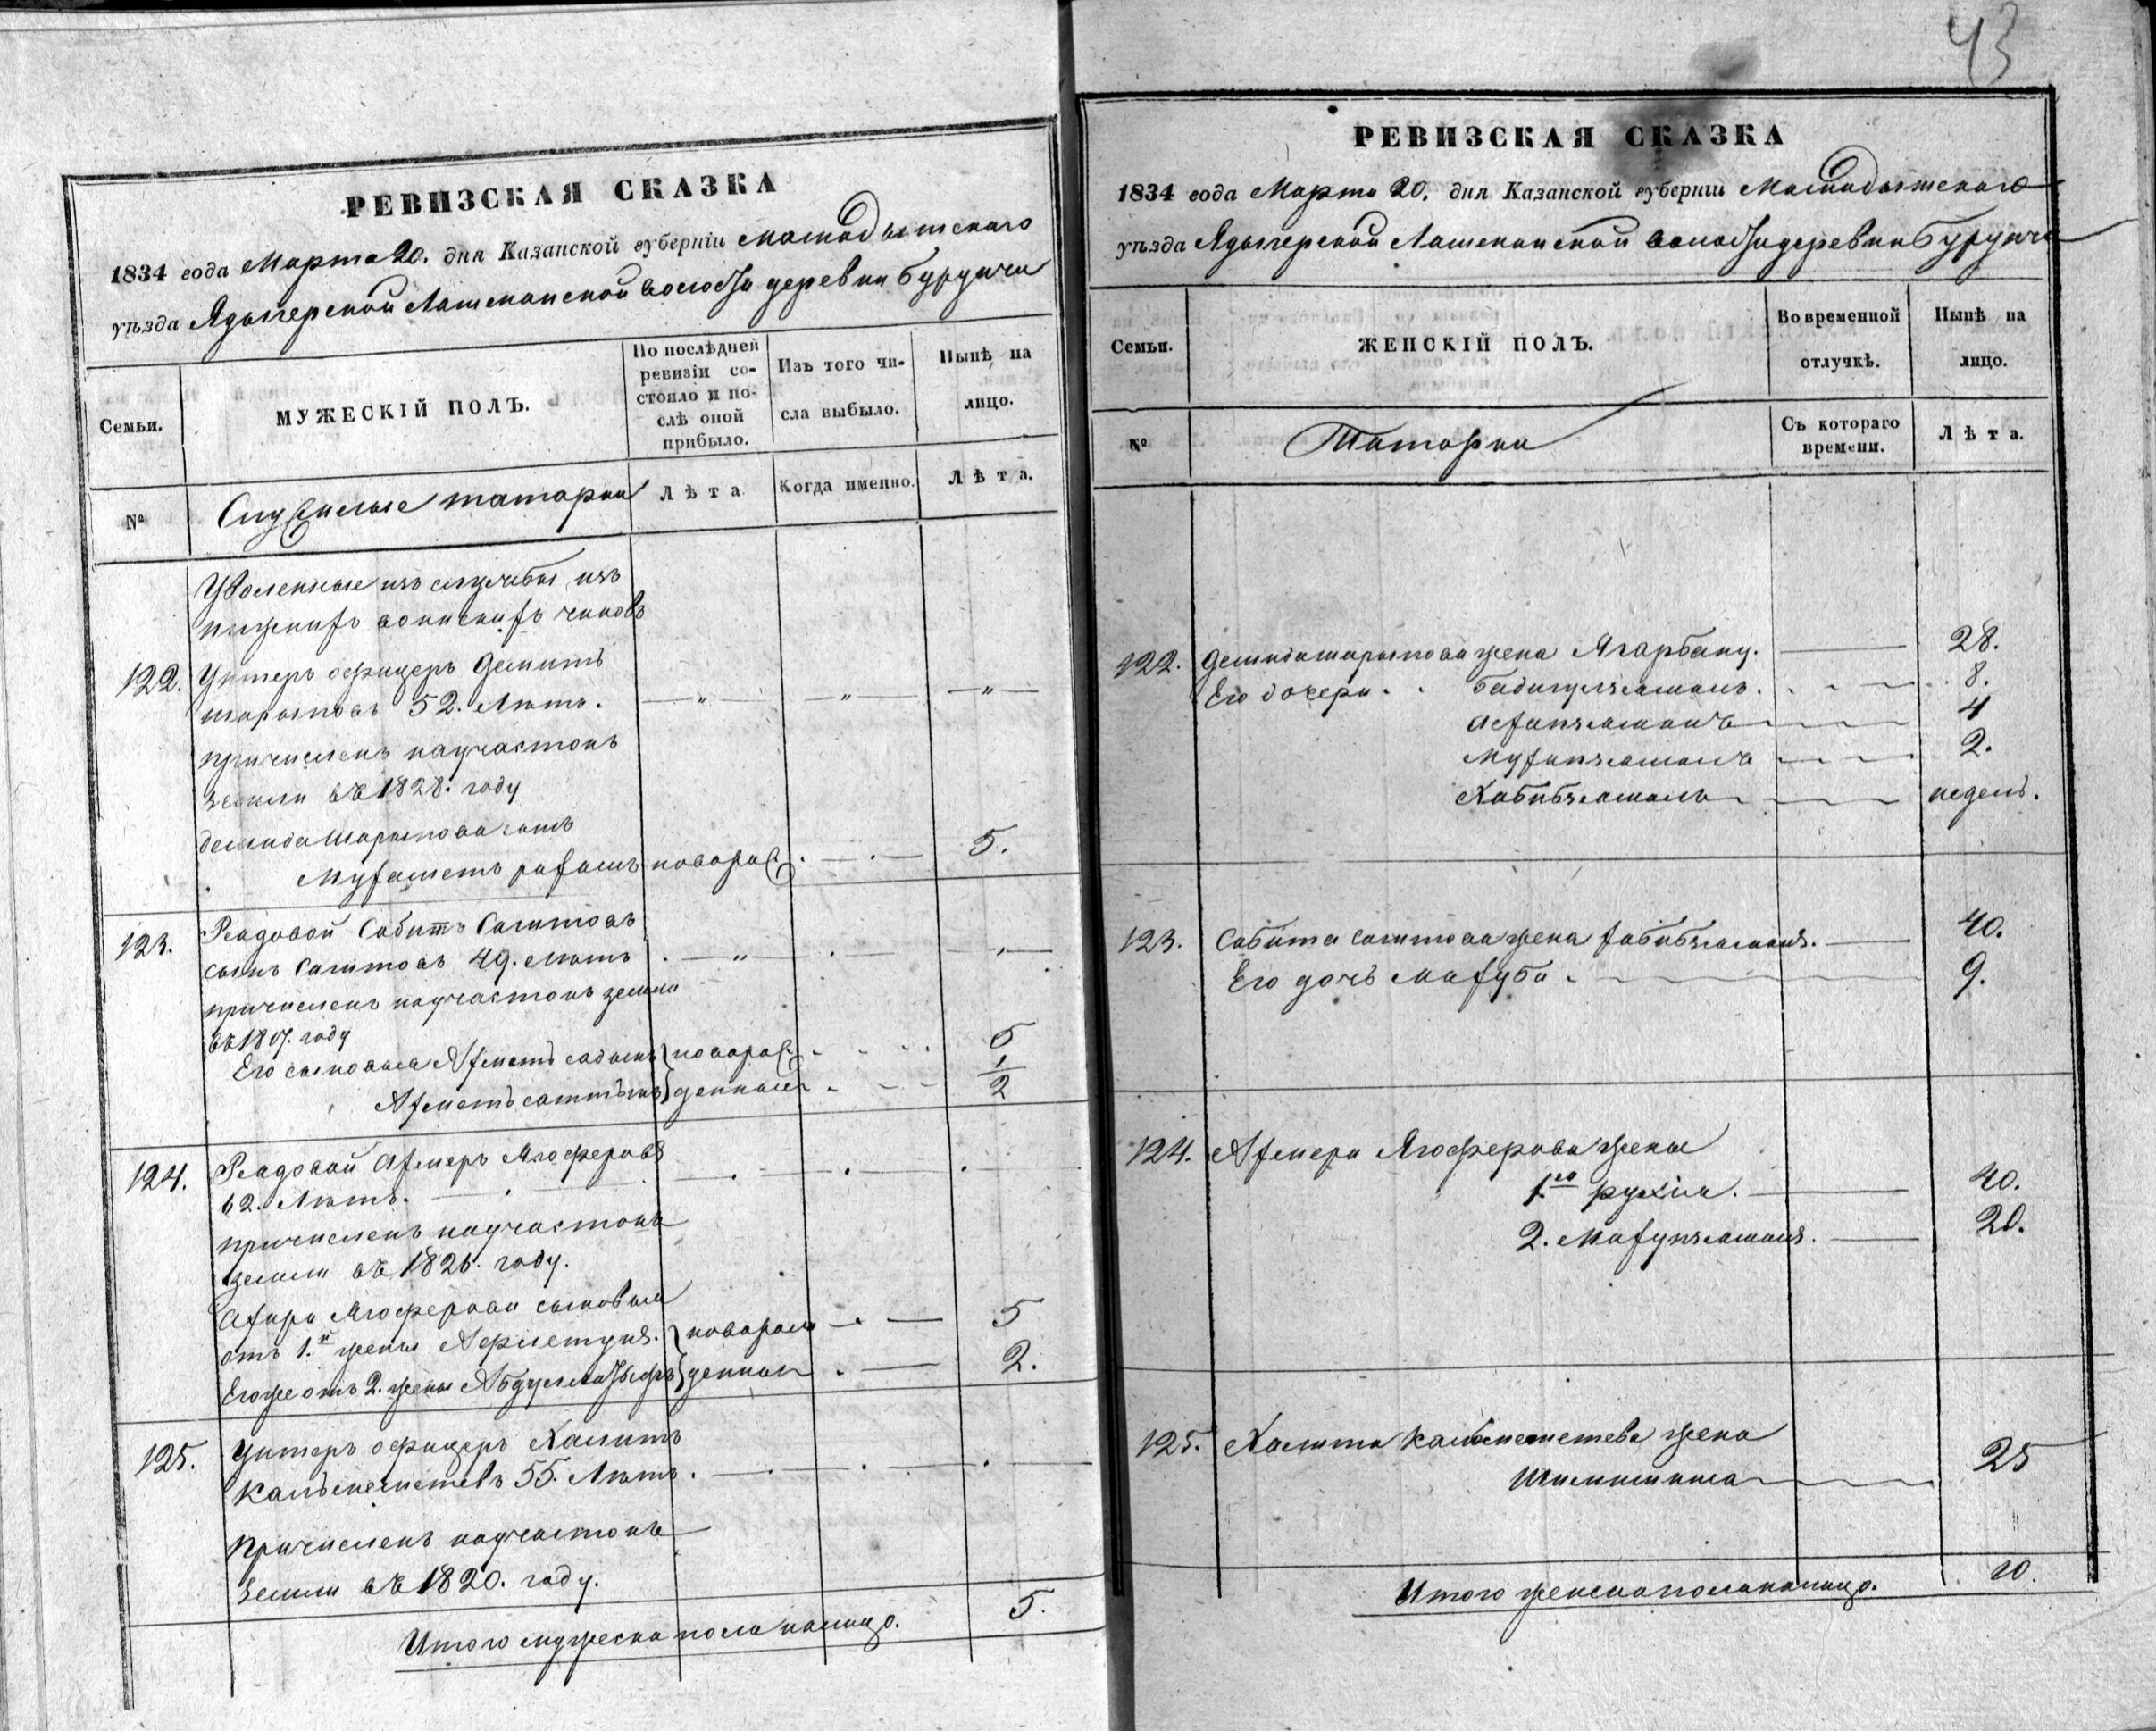 РЕВИЗСКАЯ СКАЗКА
1834 года Марта 20. дня Казанской губерніи Мамадышскаго
уѣзда Ядыгерской Лашманской волости деревни Бурунчи
Семьи.
МУЖЕСКІЙ ПОЛЪ.
По послѣдней ревизіи состояло и послѣ оной прибыло.
Изъ того числа выбыло.
Нынѣ на лицо.
№
Служилые татары
Лѣта
Когда именно.
Лѣта.
Уволенные изъ службы изъ
нижнихъ воинскихъ чиновъ
122. Унтеръ офицеръ Демитъ
Шарыповъ 52. Лѣтъ.
причисленъ научастокъ
земли въ 1828. году
демида Шарыпова сынъ
Мухаметъ рахимъ новорож 5.
123. Рядовой Сабитъ Сагитовъ
сынъ Сагитовъ 49. лѣтъ
причисленъ научастокъ земли
въ 18 году
Его сыновья Ахметъ садыкъ новорож 5
Ахметъ денные 1/2
124. Рядовой Ахмеръ Ягоферовъ
62. Лѣтъ.
причисленъ научастокъ
земли въ 1826. году.
Ягоферова сыновья
отъ 1.й жены новорож 5
Егоже отъ 2. жены денные 2.
125. Унтеръ офицеръ Хамитъ
Кальмеметевъ 55. Лѣтъ.
Причисленъ научастокъ
земли въ 1820. году.
Итого мужеска пола налицо. 5.
43
РЕВИЗСКАЯ СКАЗКА
1834 года Марта 20. дня Казанской губерніи Мамадышскаго
уѣзда Ядыгерской Лашманской волости деревни Бурунчи
Семьи.
ЖЕНСКІЙ ПОЛЪ.
Во временной отлучкѣ.
Нынѣ на лицо.
№
Татарки
Съ котораго времени.
Лѣта.
122. Демида шарыпова жена Ягарбану. 28.
Его дочери Бадигулзямалъ. 8.
4
2.
Хабибзямалъ недель.
123. Сабита сагитова жена хабибзямалъ. 40.
Его дочь Махуба 9.
124. Ахмера Ягоферова жены
1.ю рухия. 40.
2. 20.
125. Хамита Кальмеметева жена
25
Итого женска пола налицо. 10.